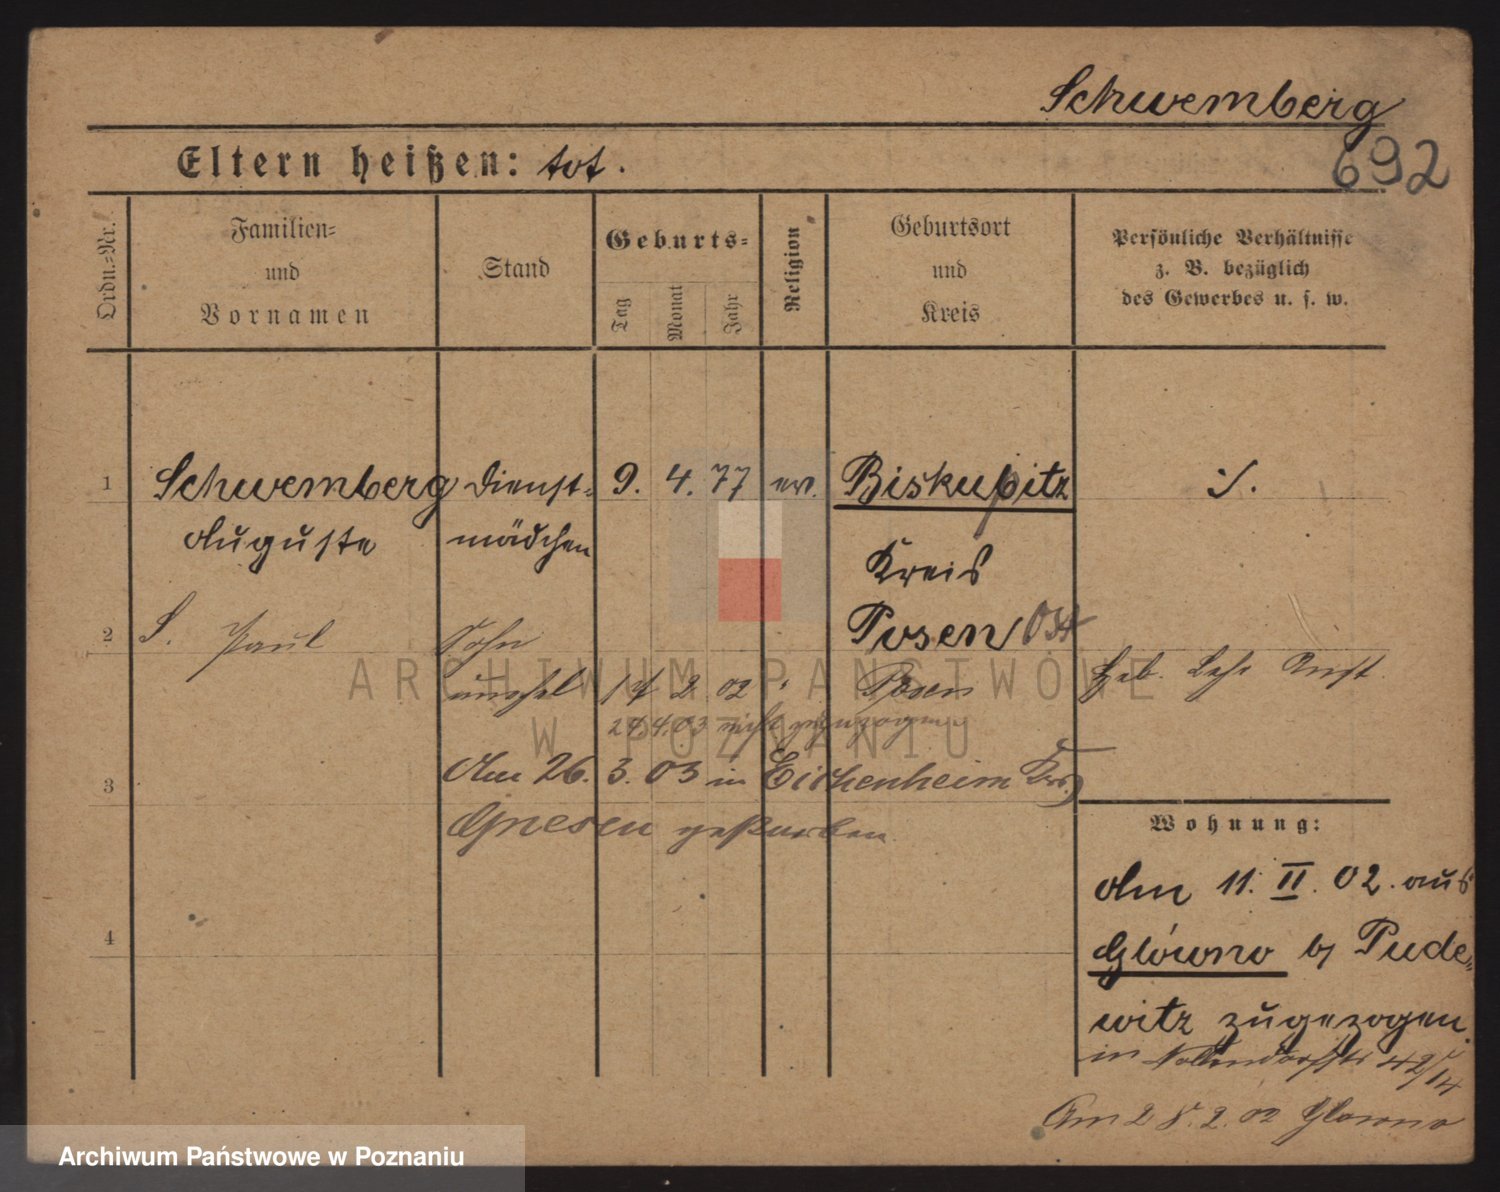 Schwemberg
692
Eltern heißen: tot.
Ordn.-Nr.
Familien-
und
Vornamen
Stand
Geburts-
Tag
Monat
Jahr
Religion
Geburtsort
und
Kreis
Persönliche Verhältnisse
z. B. bezüglich
des Gewerbes u. s. w.
1 Schwemberg Dienst- 9. 4. 77 ev. Biskupitz ./.
Auguste mädchen
Kreis
Posen Ost
2 S. Paul Sohn
unehel 17 2 02 " Posen Geb.
24.4.03 nicht zugezogen
3 Am 26. 3. 03 in Eichenheim Krs.
Gnesen gestorben
4
Wohnung:
Am 11. II. 02. aus
Glówno b/ Pude-
witz zugezogen.
in 42/14
Am 28.2.02 Glowno
ARCHIWUM PAŃSTWOWE
W POZNANIU
Archiwum Państwowe w Poznaniu